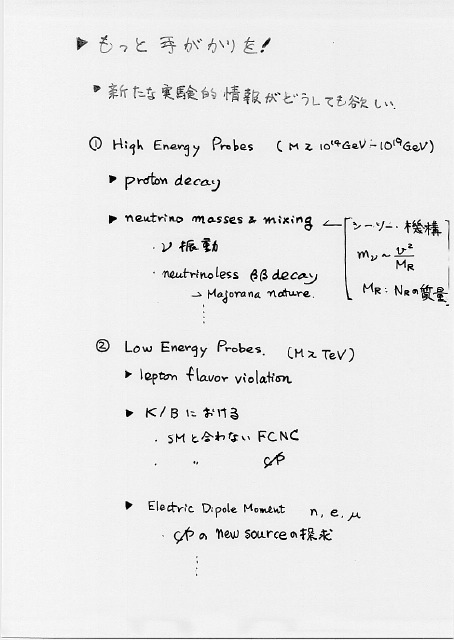 ▶ もっと 手がかりを!
▶ 新たな実験的情報がどうしても欲しい.
① High Energy Probes (M ≳ 10¹⁴GeV - 10¹⁹GeV)
▶ proton decay
▶ neutrino masses & mixing ← [シーソー・機構
・ν 振動
mν ~ v²/MR
・neutrinoless ββ decay
→ Majorana nature.
MR : NRの質量
② Low Energy Probes. (M ≳ TeV)
▶ lepton flavor violation
▶ K/B における
・SMと合わない FCNC
・ 〃 C̸P̸
▶ Electric Dipole Moment n, e, μ
・C̸P̸ の new source の探求